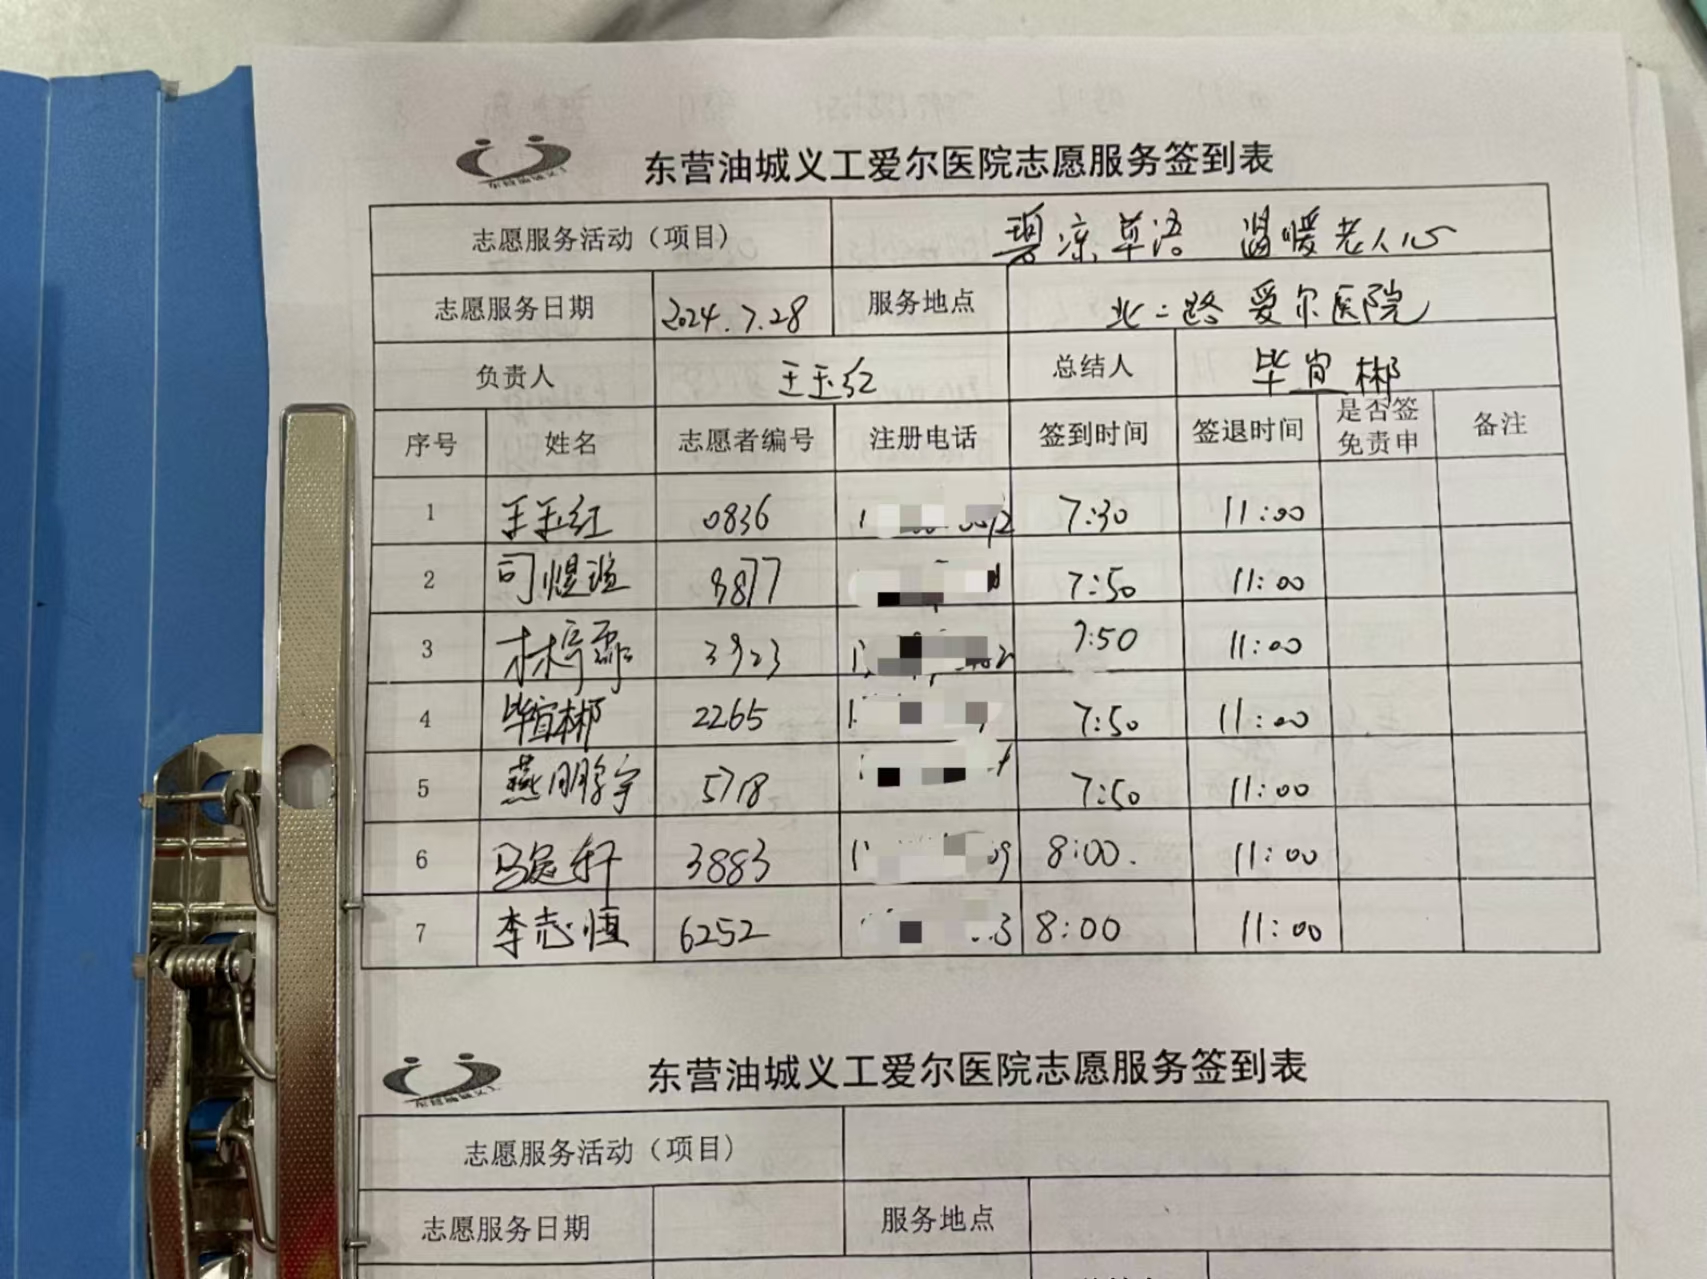 东营油城义工爱尔医院志愿服务签到表
志愿服务活动（项目） 草语 温暖老人心
志愿服务日期 2024.7.28 服务地点 北二路 爱尔医院
负责人 王玉红 总结人 毕宵彬
序号 姓名 志愿者编号 注册电话 签到时间 签退时间 是否签免责申 备注
1 王玉红 0836 7:30 11:00
2 司煜 3877 7:50 11:00
3 林 3923 7:50 11:00
4 毕宵彬 2265 7:50 11:00
5 燕鹏宇 5718 7:50 11:00
6 马 轩 3883 8:00. 11:00
7 李志恒 6252 8:00 11:00
东营油城义工爱尔医院志愿服务签到表
志愿服务活动（项目）
志愿服务日期 服务地点